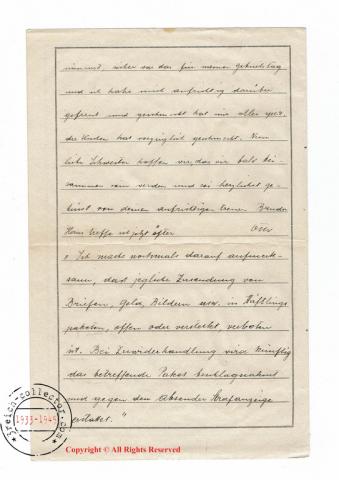 nimmt, sicher war das für meinen Geburtstag
und ich habe mich aufrichtig darüber
gefreut und geschmeckt hat mir alles gut,
der Kuchen hat vorzüglich geschmeckt. Nun
liebe Schwester hoffen wir, das wir bald bei-
sammen sein werden und sei herzlichst ge-
küsst von deinem aufrichtigen treuen Bruder
Hans treffe ich jetzt öfter
" Ich mache nochmals darauf aufmerk-
sam, das jegliche Zusendung von
Briefen, Geld, Bildern usw. in Häftlings
paketen, offen oder versteckt, verboten
ist. Bei Zuwiderhandlung wird künftig
das betreffende Paket beschlagnahmt
und gegen den Absender Strafanzeige
erstattet. "
3reich-collector.com
1933-1945
Copyright © All Rights Reserved